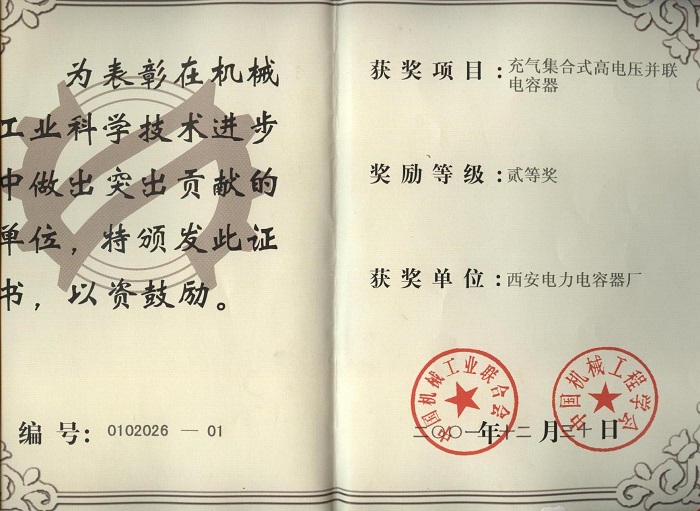 为表彰在机械
工业科学技术进步
中做出突出贡献的
单位，特颁发此证
书，以资鼓励。
编号：0102026 — 01
获奖项目：充气集合式高电压并联
电容器
奖励等级：贰等奖
获奖单位：西安电力电容器厂
中国机械工业联合会
中国机械工程学会
二〇〇一年十二月三十日